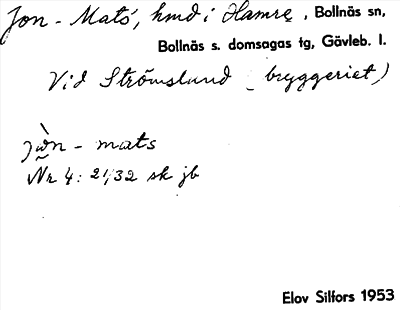 Jon-Mats, hmd i Hamre, Bollnäs sn,
Bollnäs s. domsagas tg, Gävleb. l.
Vid Strömslund (bryggeriet)
jòn-mats
Nr 4: 21,32 sk jb
Elov Silfors 1953